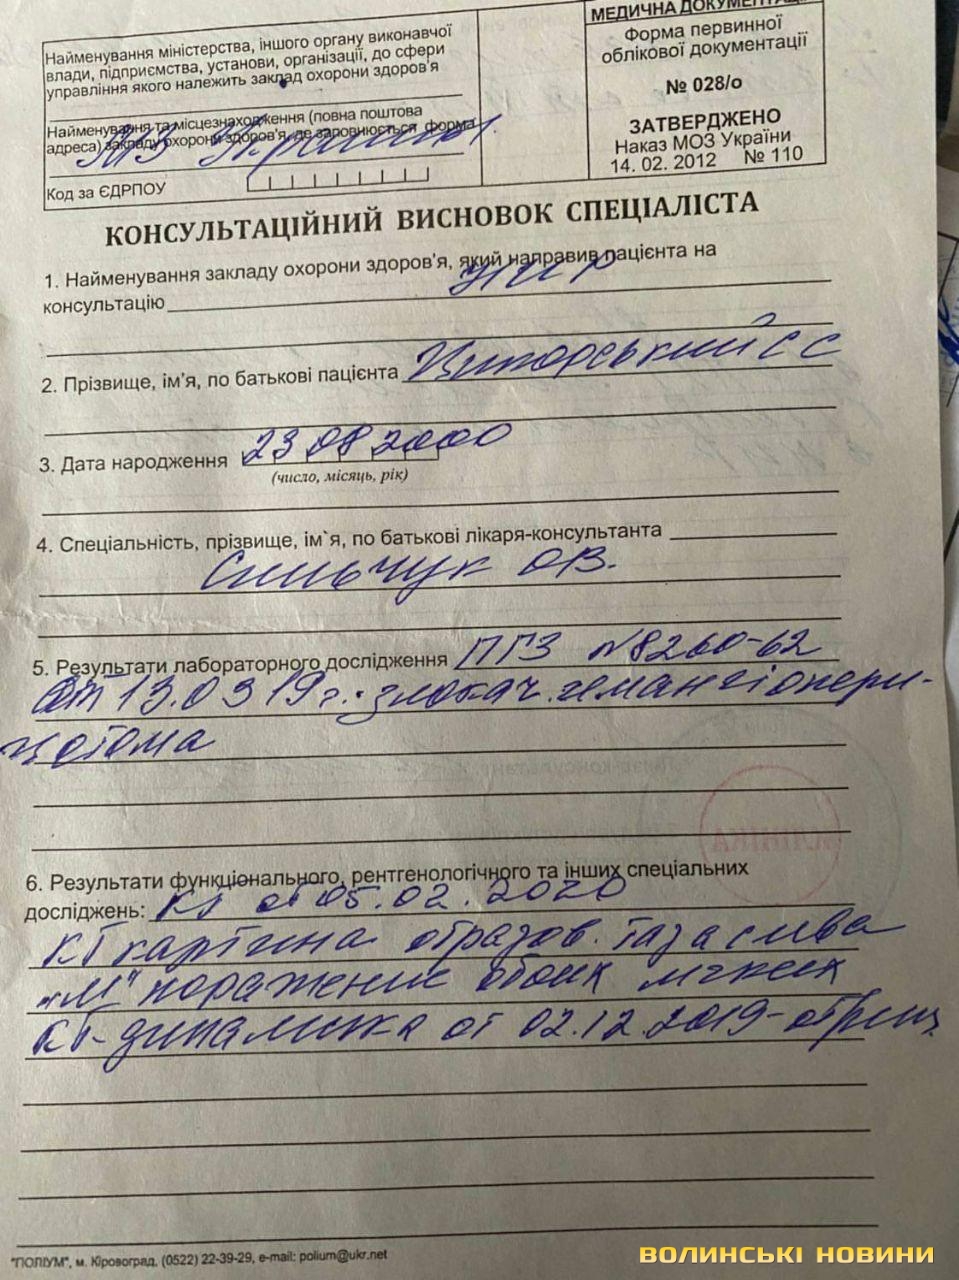 Найменування міністерства, іншого органу виконавчої
влади, підприємства, установи, організації, до сфери
управління якого належить заклад охорони здоров'я
Найменування та місцезнаходження (повна поштова
адреса) закладу охорони здоров'я, де заповнюється форма
МЗ України
Код за ЄДРПОУ
МЕДИЧНА ДОКУМЕНТАЦ
Форма первинної
облікової документації
№ 028/о
ЗАТВЕРДЖЕНО
Наказ МОЗ України
14. 02. 2012 № 110
КОНСУЛЬТАЦІЙНИЙ ВИСНОВОК СПЕЦІАЛІСТА
1. Найменування закладу охорони здоров'я, який направив пацієнта на
консультацію НИР
2. Прізвище, ім'я, по батькові пацієнта Циторський С С
3. Дата народження 23 08 2000
(число, місяць, рік)
4. Спеціальність, прізвище, ім`я, по батькові лікаря-консультанта
Сильчук ОВ.
5. Результати лабораторного дослідження ПГЗ №8260-62
от 13.03 19г. злокач. гемангіопери-
цотома
6. Результати функціонального, рентгенологічного та інших спеціальних
досліджень: КТ от 05.02.2020
КТ картина образов. таза слева
"М" поражение обоих легких
КТ-динамика от 02.12.2019-отриц
"ПОЛІУМ", м. Кіровоград, (0522) 22-39-29, e-mail: polium@ukr.net
ВОЛИНСЬКІ НОВИНИ